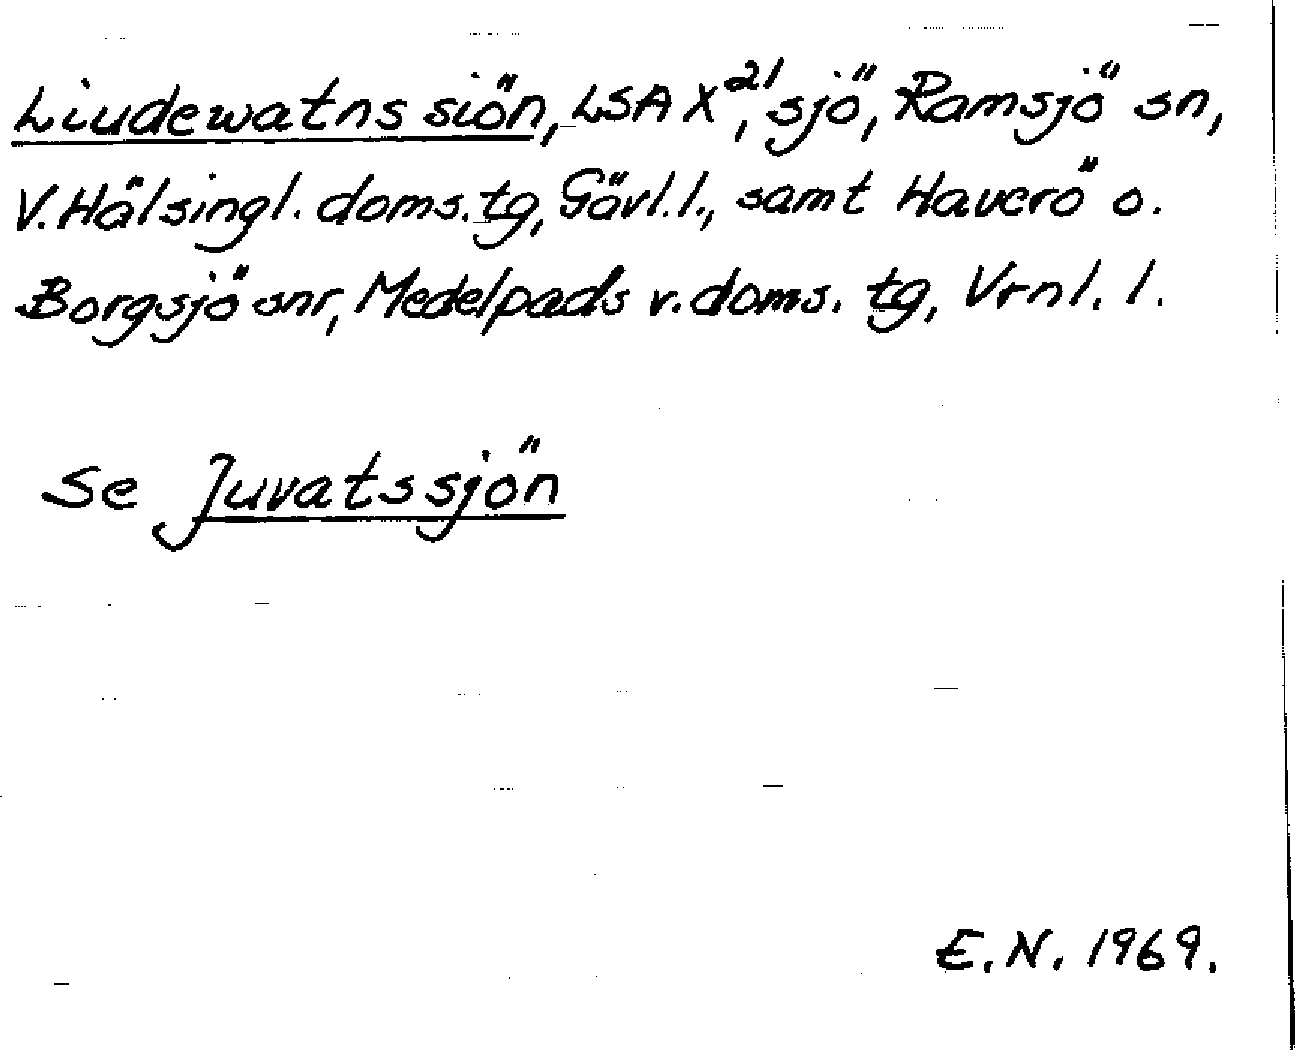 Liudewatns siön, LSA X²¹, sjö, Ramsjö sn,
V. Hälsingl. doms. tg, Gävl. l., samt Haverö o.
Borgsjö snr, Medelpads v. doms. tg, Vrnl. l.
Se Juvatssjön
E. N. 1969.